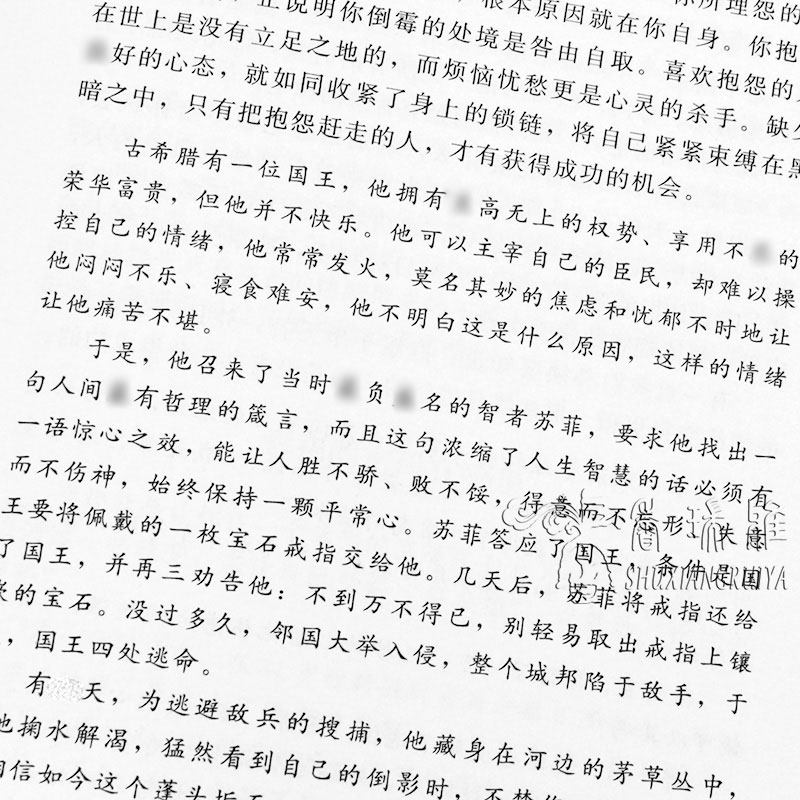 正说明你倒霉的处境是咎由自取。喜欢抱怨的
根本原因就在你自身。你抱
你所埋怨的
在世上是没有立足之地的，而烦恼忧愁更是心灵的杀手。缺少
好的心态，就如同收紧了身上的锁链，将自己紧紧束缚在黑
暗之中，只有把抱怨赶走的人，才有获得成功的机会。
古希腊有一位国王，他拥有高无上的权势、享用不的
荣华富贵，但他并不快乐。他可以主宰自己的臣民，却难以操
控自己的情绪，他常常发火，莫名其妙的焦虑和忧郁不时地让
他闷闷不乐、寝食难安，他不明白这是什么原因，这样的情绪
让他痛苦不堪。
于是，他召来了当时负名的智者苏菲，要求他找出一
句人间有哲理的箴言，而且这句浓缩了人生智慧的话必须有
一语惊心之效，能让人胜不骄、败不馁，得意而不忘形、失意
而不伤神，始终保持一颗平常心。苏菲答应了国王，条件是国
王要将佩戴的一枚宝石戒指交给他。几天后，苏菲将戒指还给
了国王，并再三劝告他：不到万不得已，别轻易取出戒指上镶
嵌的宝石。没过多久，邻国大举入侵，整个城邦陷于敌手，于
，国王四处逃命。
有天，为逃避敌兵的搜捕，他藏身在河边的茅草丛中，
他掬水解渴，猛然看到自己的倒影时，不禁
相信如今这个蓬头垢
SHUXIANGRUIYA